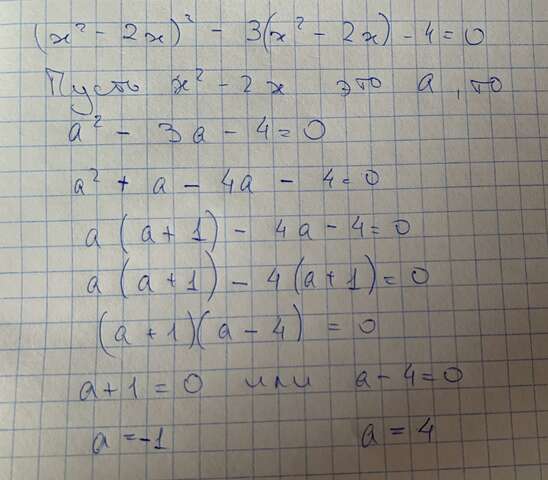 (x² - 2x)² - 3(x² - 2x) - 4 = 0
Пусть x² - 2x это a, то
a² - 3a - 4 = 0
a² + a - 4a - 4 = 0
a(a + 1) - 4a - 4 = 0
a(a + 1) - 4(a + 1) = 0
(a + 1)(a - 4) = 0
a + 1 = 0 или a - 4 = 0
a = -1 a = 4